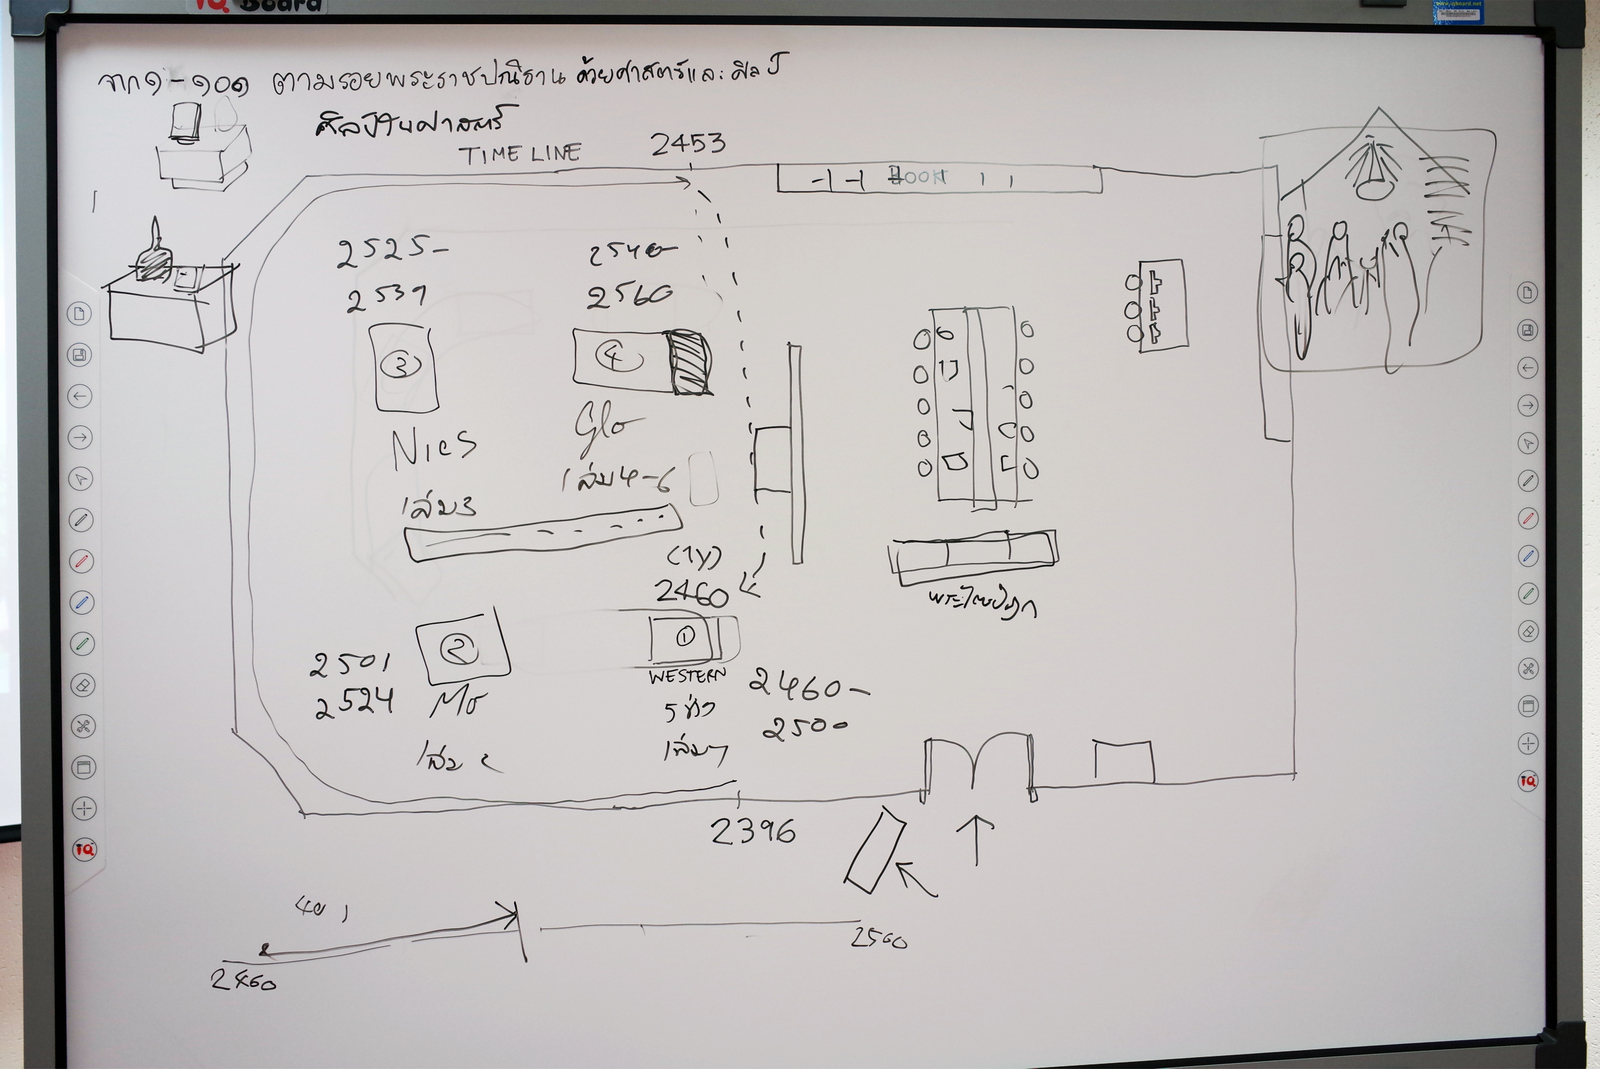 IQ Board
จาก๑-๑๐๑ ตามรอยพระราชปณิธาน ด้วยศาสตร์และศิลป์
ศิลป์ในศาสตร์
TIME LINE
2453
BOOK
2525-
2539
2540-
2560
3
4
Nies
Glo
เล่ม3
เล่ม4-6
(1y)
2460
พระไตรปิฎก
2
1
2501
2524
Mo
เล่ม 2
WESTERN
5 ช่วง
เล่ม1
2460-
2500
2396
40 ป
2460
2560
IQ
IQ